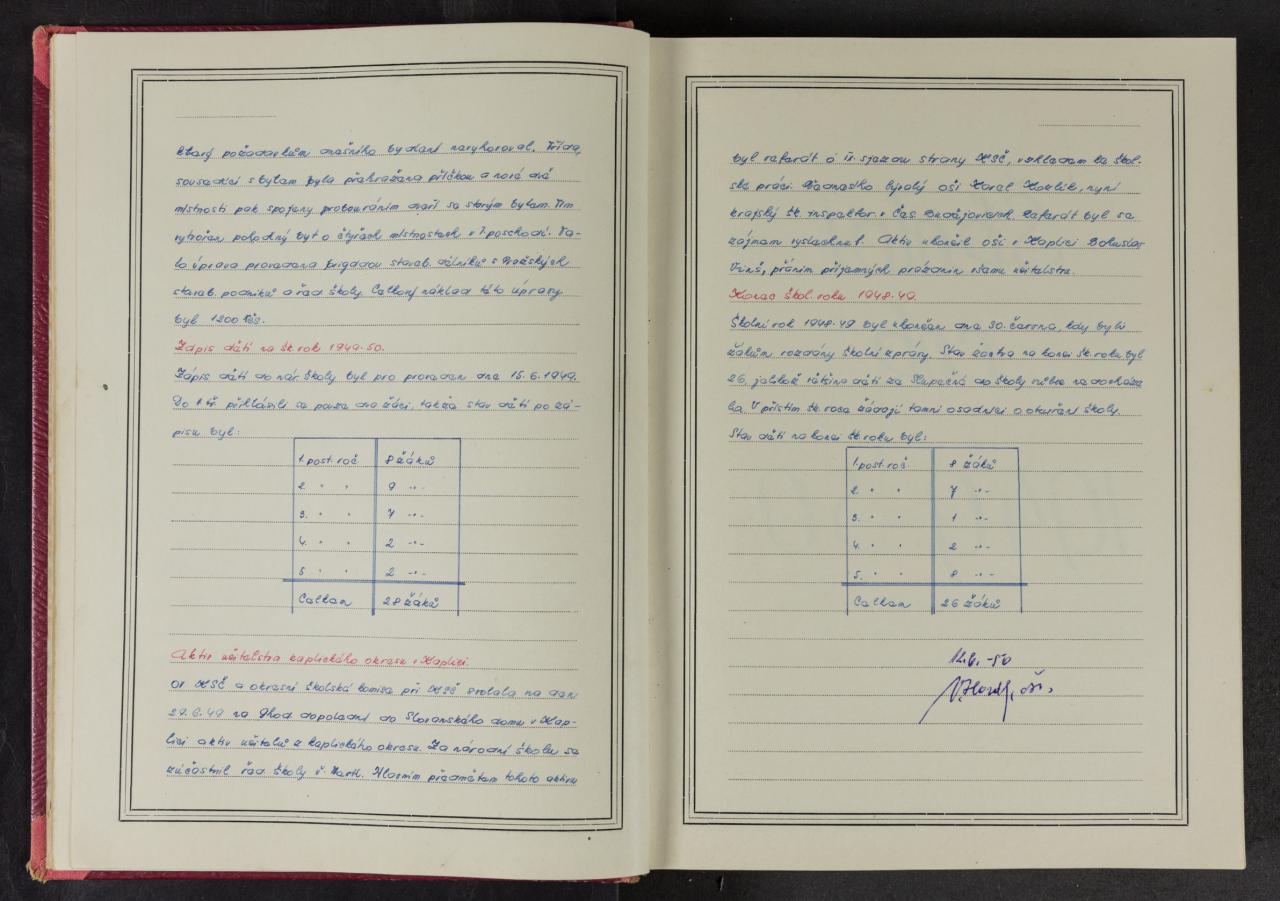 který požadavkům dnešního bydlení nevyhovoval. Třída,
sousedící s bytem byla přehražena příčkou a nové dvě
místnosti pak spojeny probouráním dveří se starým bytem. Tím
vytvořen pohodlný byt o čtyřech místnostech v I. poschodí. Ta-
to úprava provedena brigádou staveb. dělníků s Pražských
staveb. podniků a řed školy. Celkový náklad této úpravy
byl 1200 Kčs.
Zápis dětí na šk. rok 1949-50.
Zápis dětí do nár. školy byl pro proveden dne 15.6.1949.
Do I. tř. přihlásili se pouze dva žáci, takže stav dětí po zá-
pisu byl:
1. post. roč. 8 žáků
2. " " 9 -"-
3. " " 7 -"-
4. " " 2 -"-
5 " " 2 -"-
Celkem 28 žáků
Aktiv učitelstva kaplického okresu v Kaplici.
OV KSČ a okresní školská komise při KSČ svolala na den
29.6.49 na 9 hod dopoledne do Slovanského domu v Kap-
lici aktiv učitelů z kaplického okresu. Za národní školu se
zúčastnil řed školy V. Hlavním předmětem tohoto aktivu
byl referát o IX. sjezdu strany KSČ, vzhledem ke škol-
ské práci. Přednesl ho bývalý oši Karel nyní
krajský šk. inspektor v Čes. Budějovicích. Referát byl se
zájmem vyslechnut. Aktiv ukončil oši v Kaplici Bohuslav
přáním příjemných prázdnin všemu učitelstvu.
Konec škol. roku 1948-49.
Školní rok 1948-49 byl ukončen dne 30. června, kdy byly
žákům rozdány školní zprávy. Stav žactva na konci šk. roku byl
26, jelikož většina dětí ze Slupečné do školy vůbec nedocháze
la. V příštím šk. roce žádají tamní osadníci o otevření školy.
Stav dětí na konci šk. roku byl:
1. post. roč. 8 žáků
2. " " 7 -"-
3. " " 1 -"-
4. " " 2 -"-
5. " " 8 -"-
Celkem 26 žáků
12.6.-50
oši.